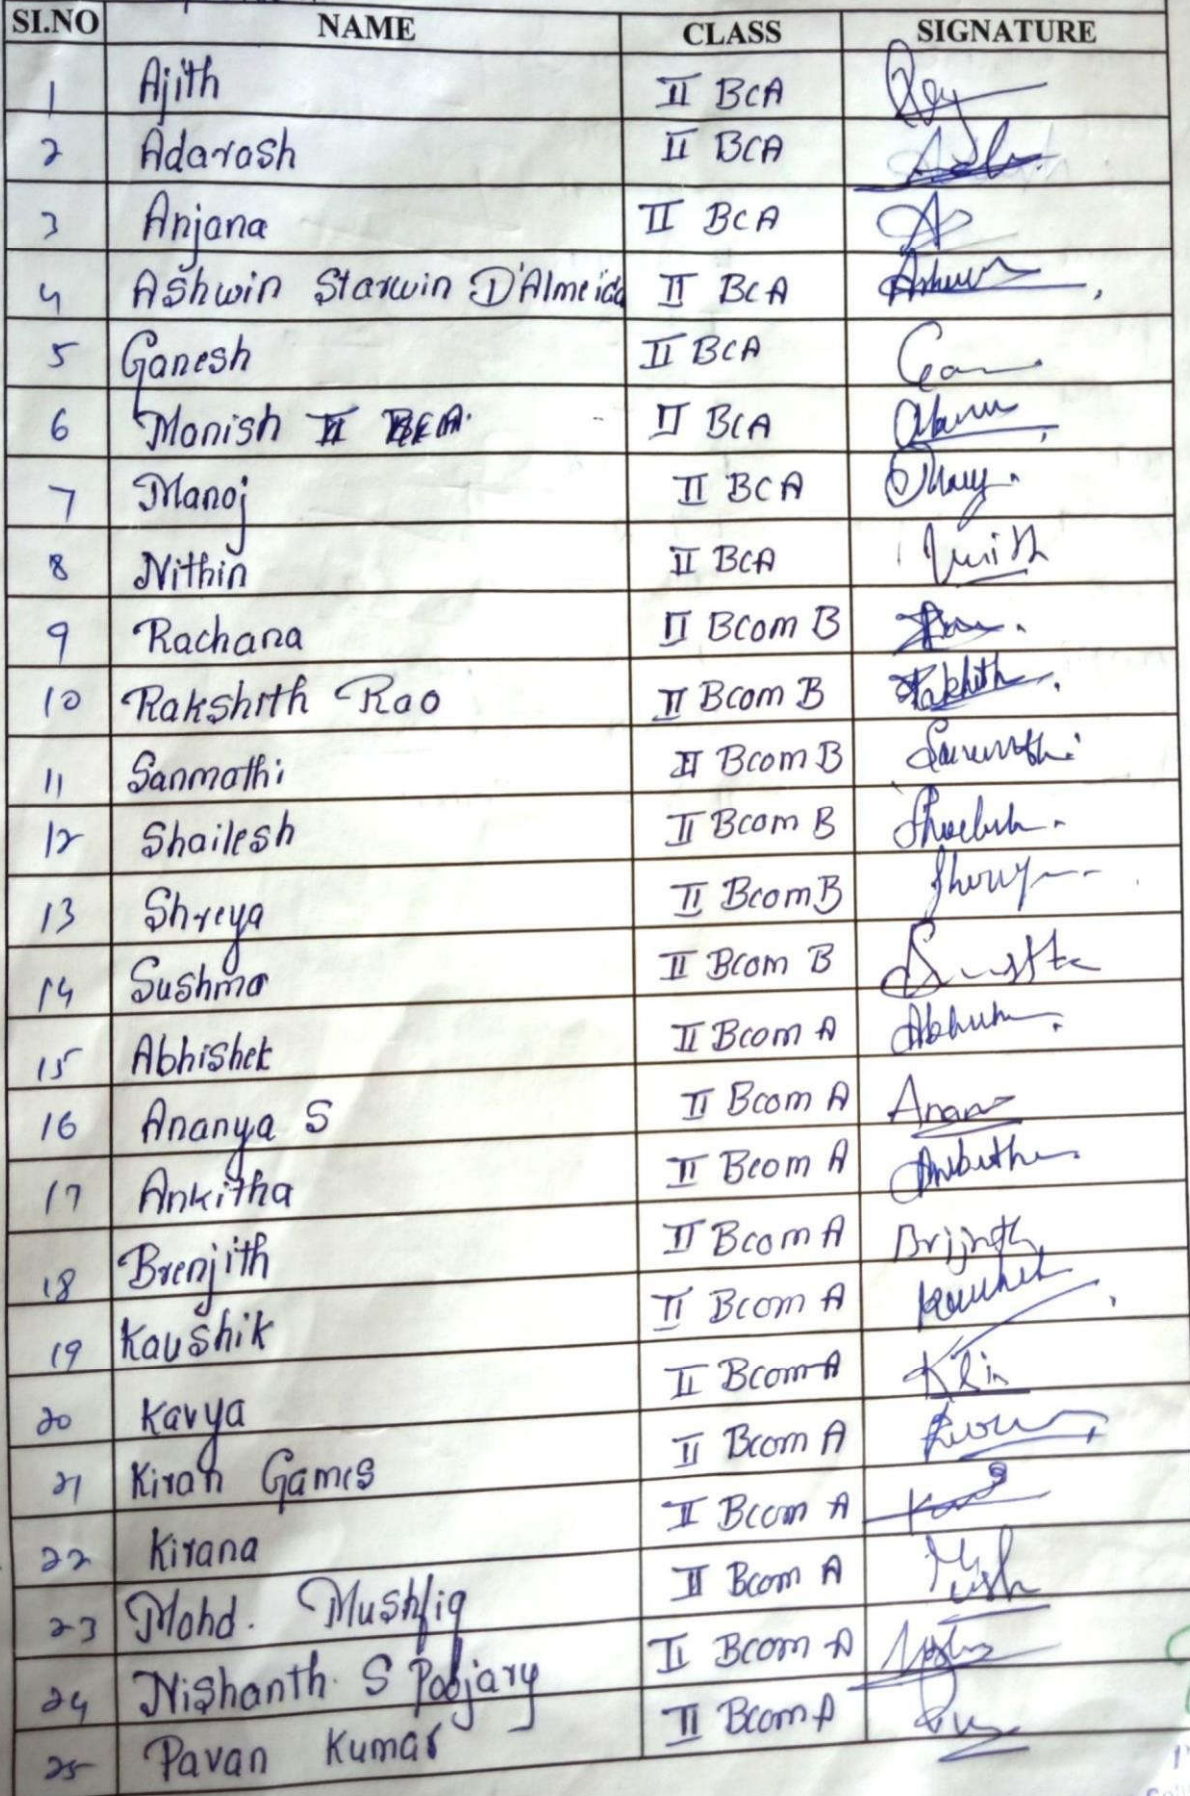 SI.NO NAME CLASS SIGNATURE
1 Ajith II BCA
2 Adarosh II BCA
3 Anjana II BCA
4 Ashwin Starwin D'Almeida II BCA
5 Ganesh II BCA
6 Monish II BCA. II BCA
7 Manoj II BCA
8 Nithin II BCA
9 Rachana II Bcom B
10 Rakshith Rao II Bcom B
11 Sanmathi II Bcom B
12 Shailesh II Bcom B
13 Shreya II Bcom B
14 Sushma II Bcom B
15 Abhishek II Bcom A
16 Ananya S II Bcom A
17 Ankitha II Bcom A
18 Brenjith II Bcom A
19 Kaushik II Bcom A
20 Kavya II Bcom A
21 Kiran Games II Bcom A
22 Kirana II Bcom A
23 Mohd. Mushfiq II Bcom A
24 Nishanth. S Poojary II Bcom A
25 Pavan Kumar II Bcom A